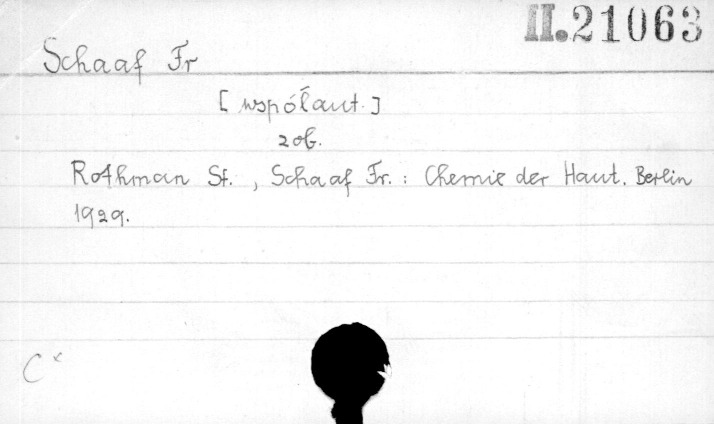 II.21063
Schaaf Fr
[współaut.]
zob.
Rothman St., Schaaf Fr.: Chemie der Haut. Berlin
1929.
C x